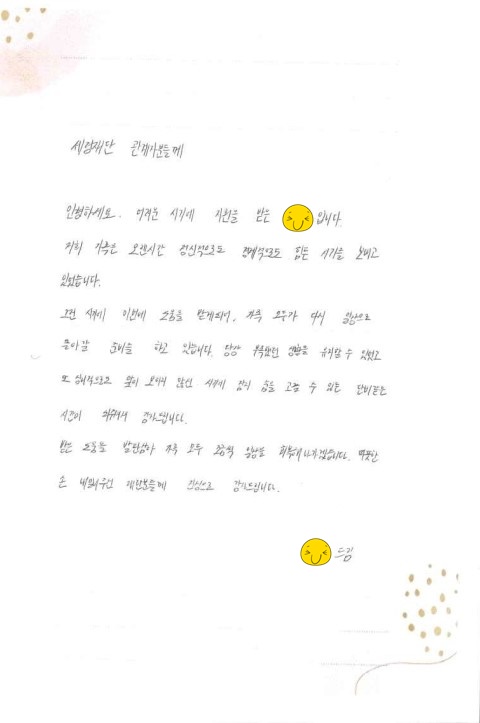 세양재단 관계자분들께
안녕하세요. 어려운 시기에 지원을 받은 입니다.
저희 가족은 오랜시간 정신적으로도 경제적으로도 힘든 시기를 보내고
있었습니다.
그런 시기에 이번에 도움을 받게되어, 가족 모두가 다시 일상으로
돌아갈 준비를 하고 있습니다. 당장 부족했던 생활을 유지할 수 있었고
또 심리적으로도 앞이 보이지 않던 시기에 잠시 숨을 고를 수 있는 단비같은
시간이 되어서 감사드립니다.
받은 도움을 발판삼아 가족 모두 조금씩 일상을 회복해나가겠습니다. 따뜻한
손 내밀어주신 재단분들께 진심으로 감사드립니다.
드림